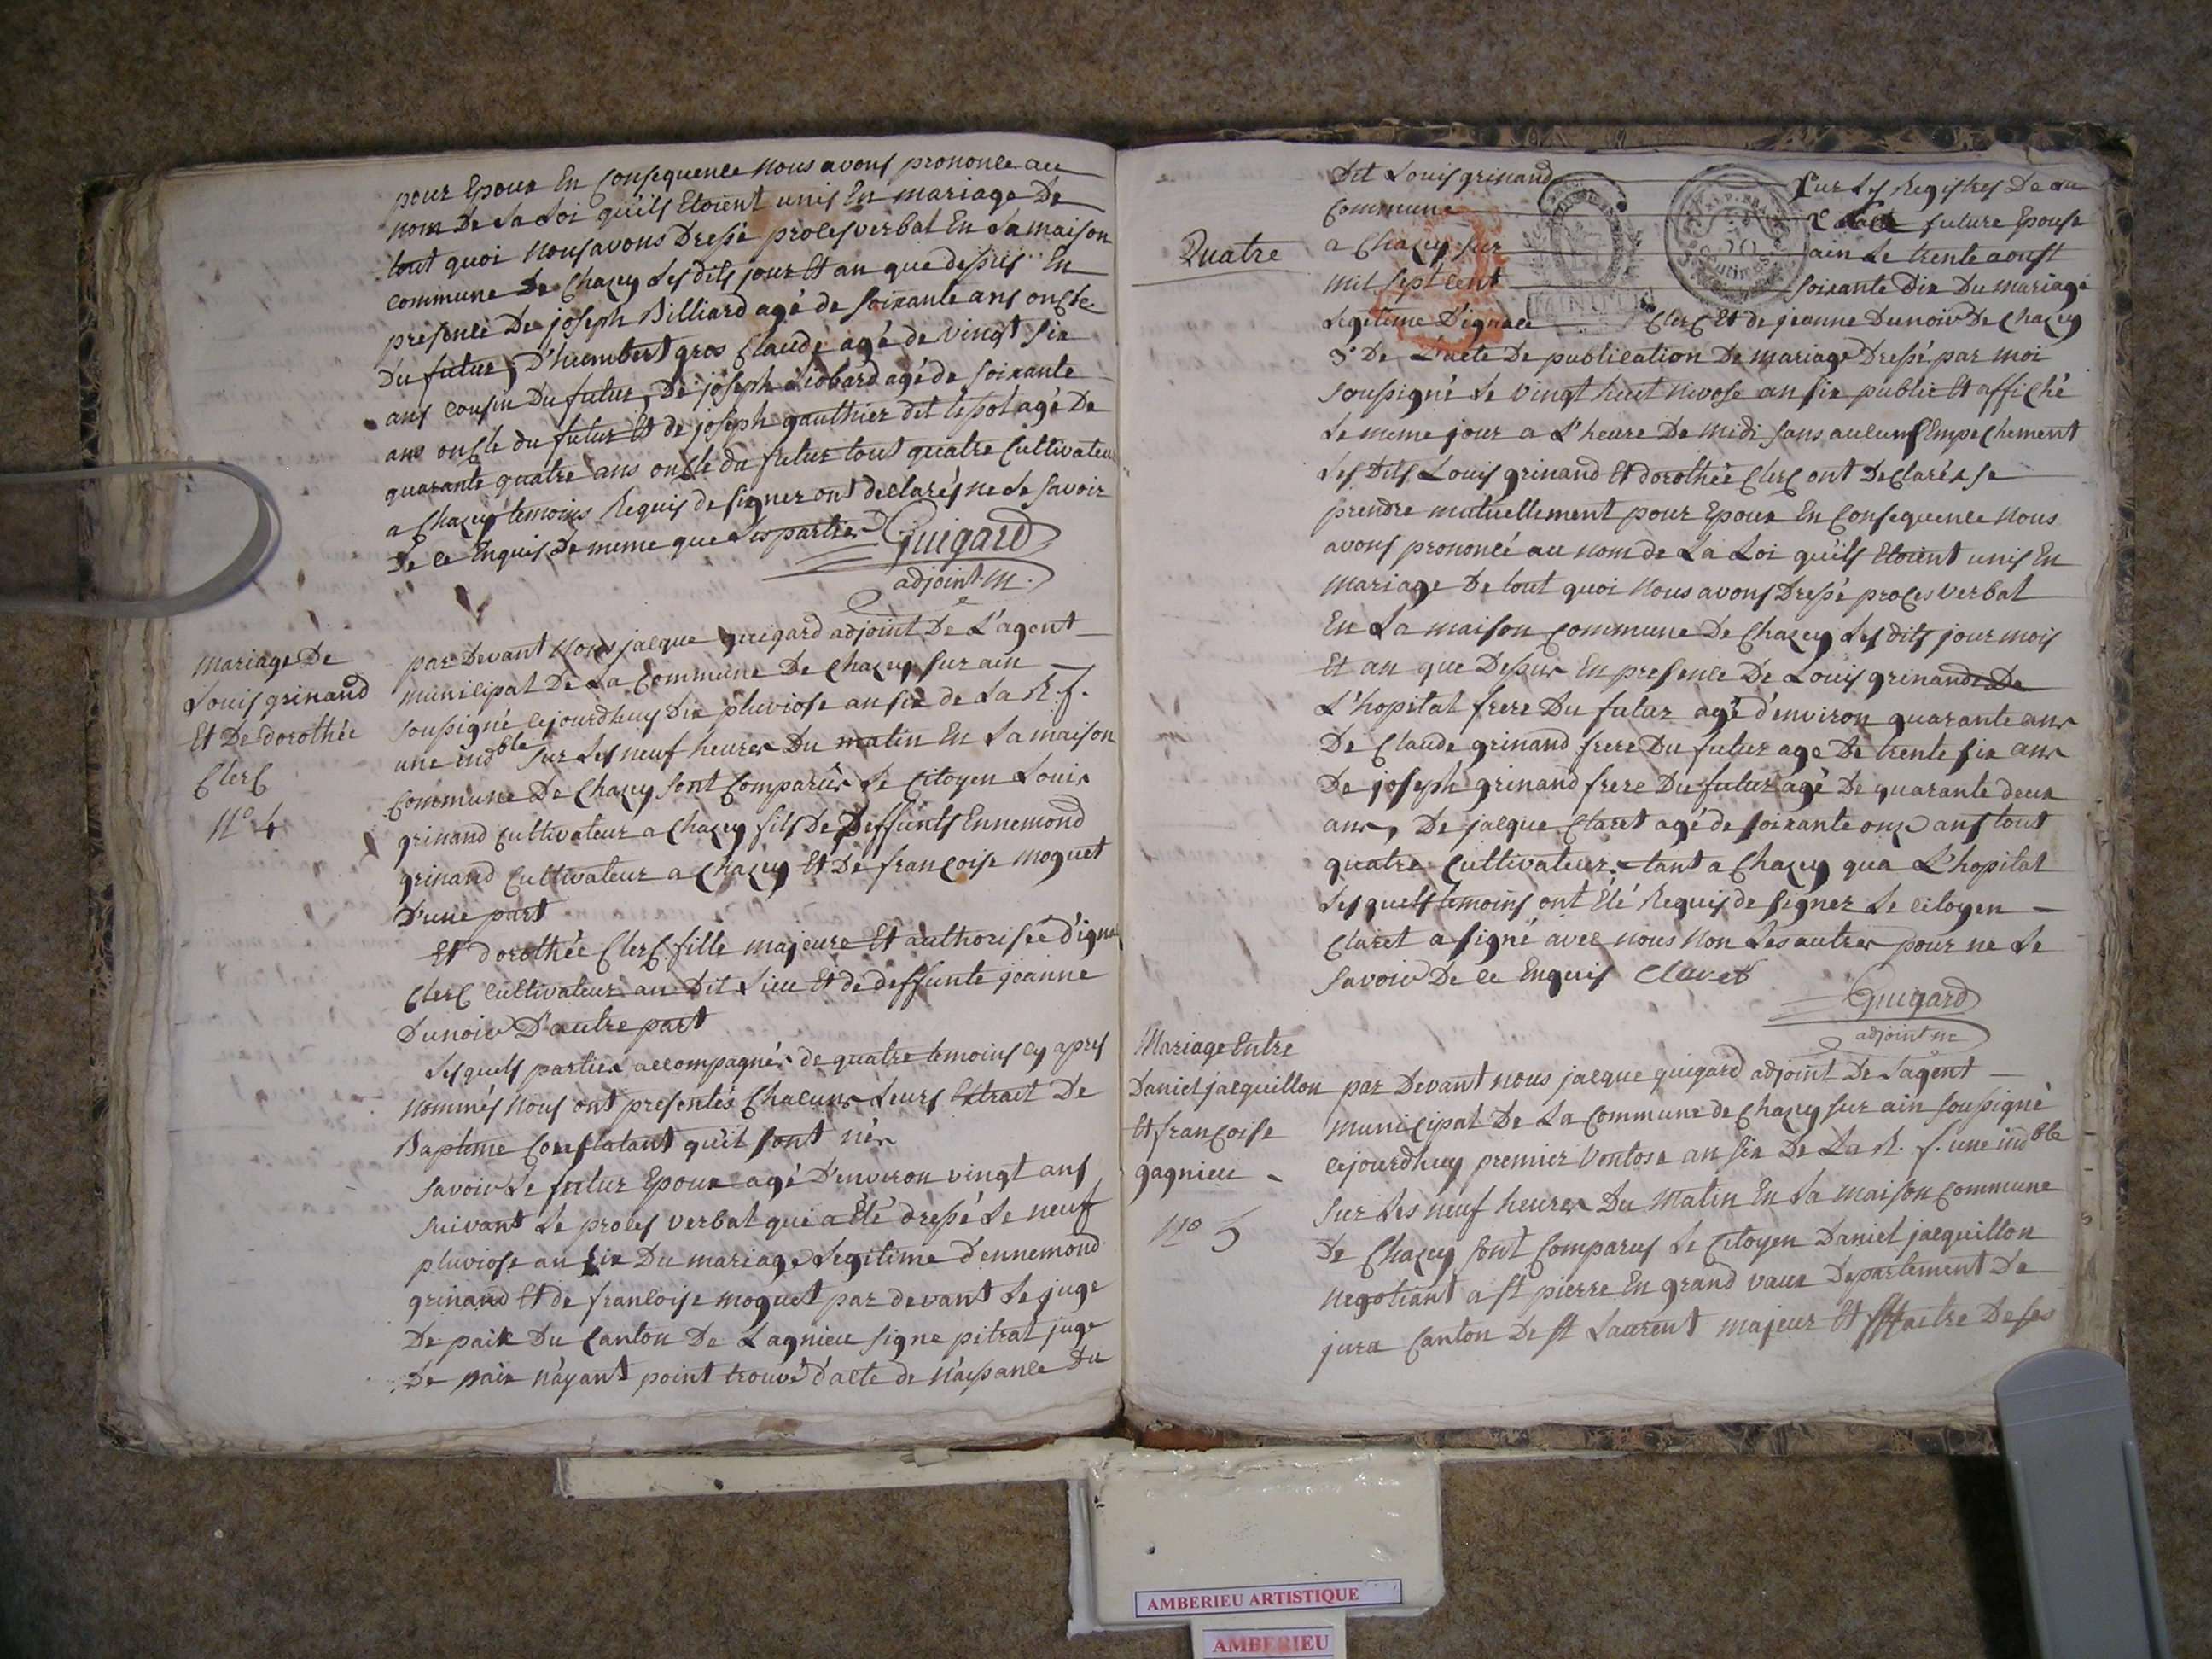 pour Epoux En Consequence nous avons prononce au
nom De La Loi qu'ils Etoient unis En mariage De
tout quoi nous avons Dressé procesverbal En La maison
commune De Chazey Les dits jour Et an que dessus En
presence De joseph Billiard agé de soixante ans oncle
Du futur, D'humbert gros Claude agé de vingt six
ans cousin Du futur, De joseph Liobard agé de soixante
ans oncle du futur Et de joseph gauthier dit agé De
quarante quatre ans oncle du futur tout quatre Cultivateur
a Chazey temoins Requis de signer ont declarés ne Le savoir
De ce Enquis De meme que Les parties Guigard
adjoint m.
mariage De
Louis grinand
Et De dorothée
Clerc
N° 4
par Devant Nous jacque guigard adjoint De L'agent
municipal De La Commune De Chazey sur ain
soussigné cejourdhuy Dix pluviose an six de La R. f.
une indble sur Les neuf heures Du matin En La maison
Commune De Chazey sont Comparus Le Citoyen Louis
grinand Cultivateur a Chazey fils De Deffunts Ennemond
grinand Cultivateur a Chazey Et De françoise moquet
D'une part
Et dorothée Clerc fille majeure Et authorisée d'igna
Clerc Cultivateur au Dit Lieu Et de deffunte jeanne
Dunoir D'autre part
Lesquels parties accompagnés de quatre temoins cy apres
nommés nous ont presentés Chacuns Leurs Extrait De
Baptême Constatant qu'il sont nés
savoir Le futur Epoux agé D'environ vingt ans
suivant Le proces verbal qui a Eté dressé Le neuf
pluviose an six Du mariage Legitime d'ennemond
grinand Et de francoise moquet par devant Le juge
De paix Du Canton De Lagnieu signe pitrat juge
De paix n'ayant point trouvé d'acte de naissance Du
Quatre
Dit Louis grinand sur Les Registres De La
Commune future Epouse
a Chazey sur ain Le trente aoust
mil sept cent soixante Dix Du mariage
Legitime D'ignace Clerc Et de jeanne Dunoir De Chazey
3° De L'acte De publication De mariage Dressé par moi
soussigné Le vingt huit nivose an six publié Et affiché
Le meme jour a L'heure De midi sans aucuns Empechement
Les Dits Louis grinand Et dorothée Clerc ont Declarés se
prendre mutuellement pour Epoux En Consequence Nous
avons prononcé au nom de La Loi qu'ils Etoient unis En
mariage De tout quoi nous avons Dressé proces verbal
En La maison Commune De Chazey Les dits jour mois
Et an que Dessus En presence De Louis grinand De
L'hopital frere Du futur agé d'environ quarante ans
De Claude grinand frere Du futur age De trente six ans
De joseph grinand frere Du futur agé De quarante deux
ans, De jacque Claret agé de soixante onze ans tout
quatre Cultivateurs tant a Chazey qua L'hopital
Lesquels temoins ont Eté Requis de signer Le citoyen
Claret a signé avec nous Non Les autres pour ne Le
savoir De ce Enquis Claret
Guigard
adjoint m
Mariage Entre
Daniel jacquillon
Et françoise
gagnieu
N° 5
par Devant nous jacque guigard adjoint De L'agent
municipal De La Commune de Chazey sur ain soussigné
cejourdhuy premier Ventose an six De La R. f. une indble
sur Les neuf heures Du Matin En La maison Commune
De Chazey sont Comparus Le Citoyen Daniel jacquillon
negotiant a st pierre En grand vaux Departement De
jura Canton De st Laurent majeur Et Maitre De ses
AMBERIEU ARTISTIQUE
AMBERIEU